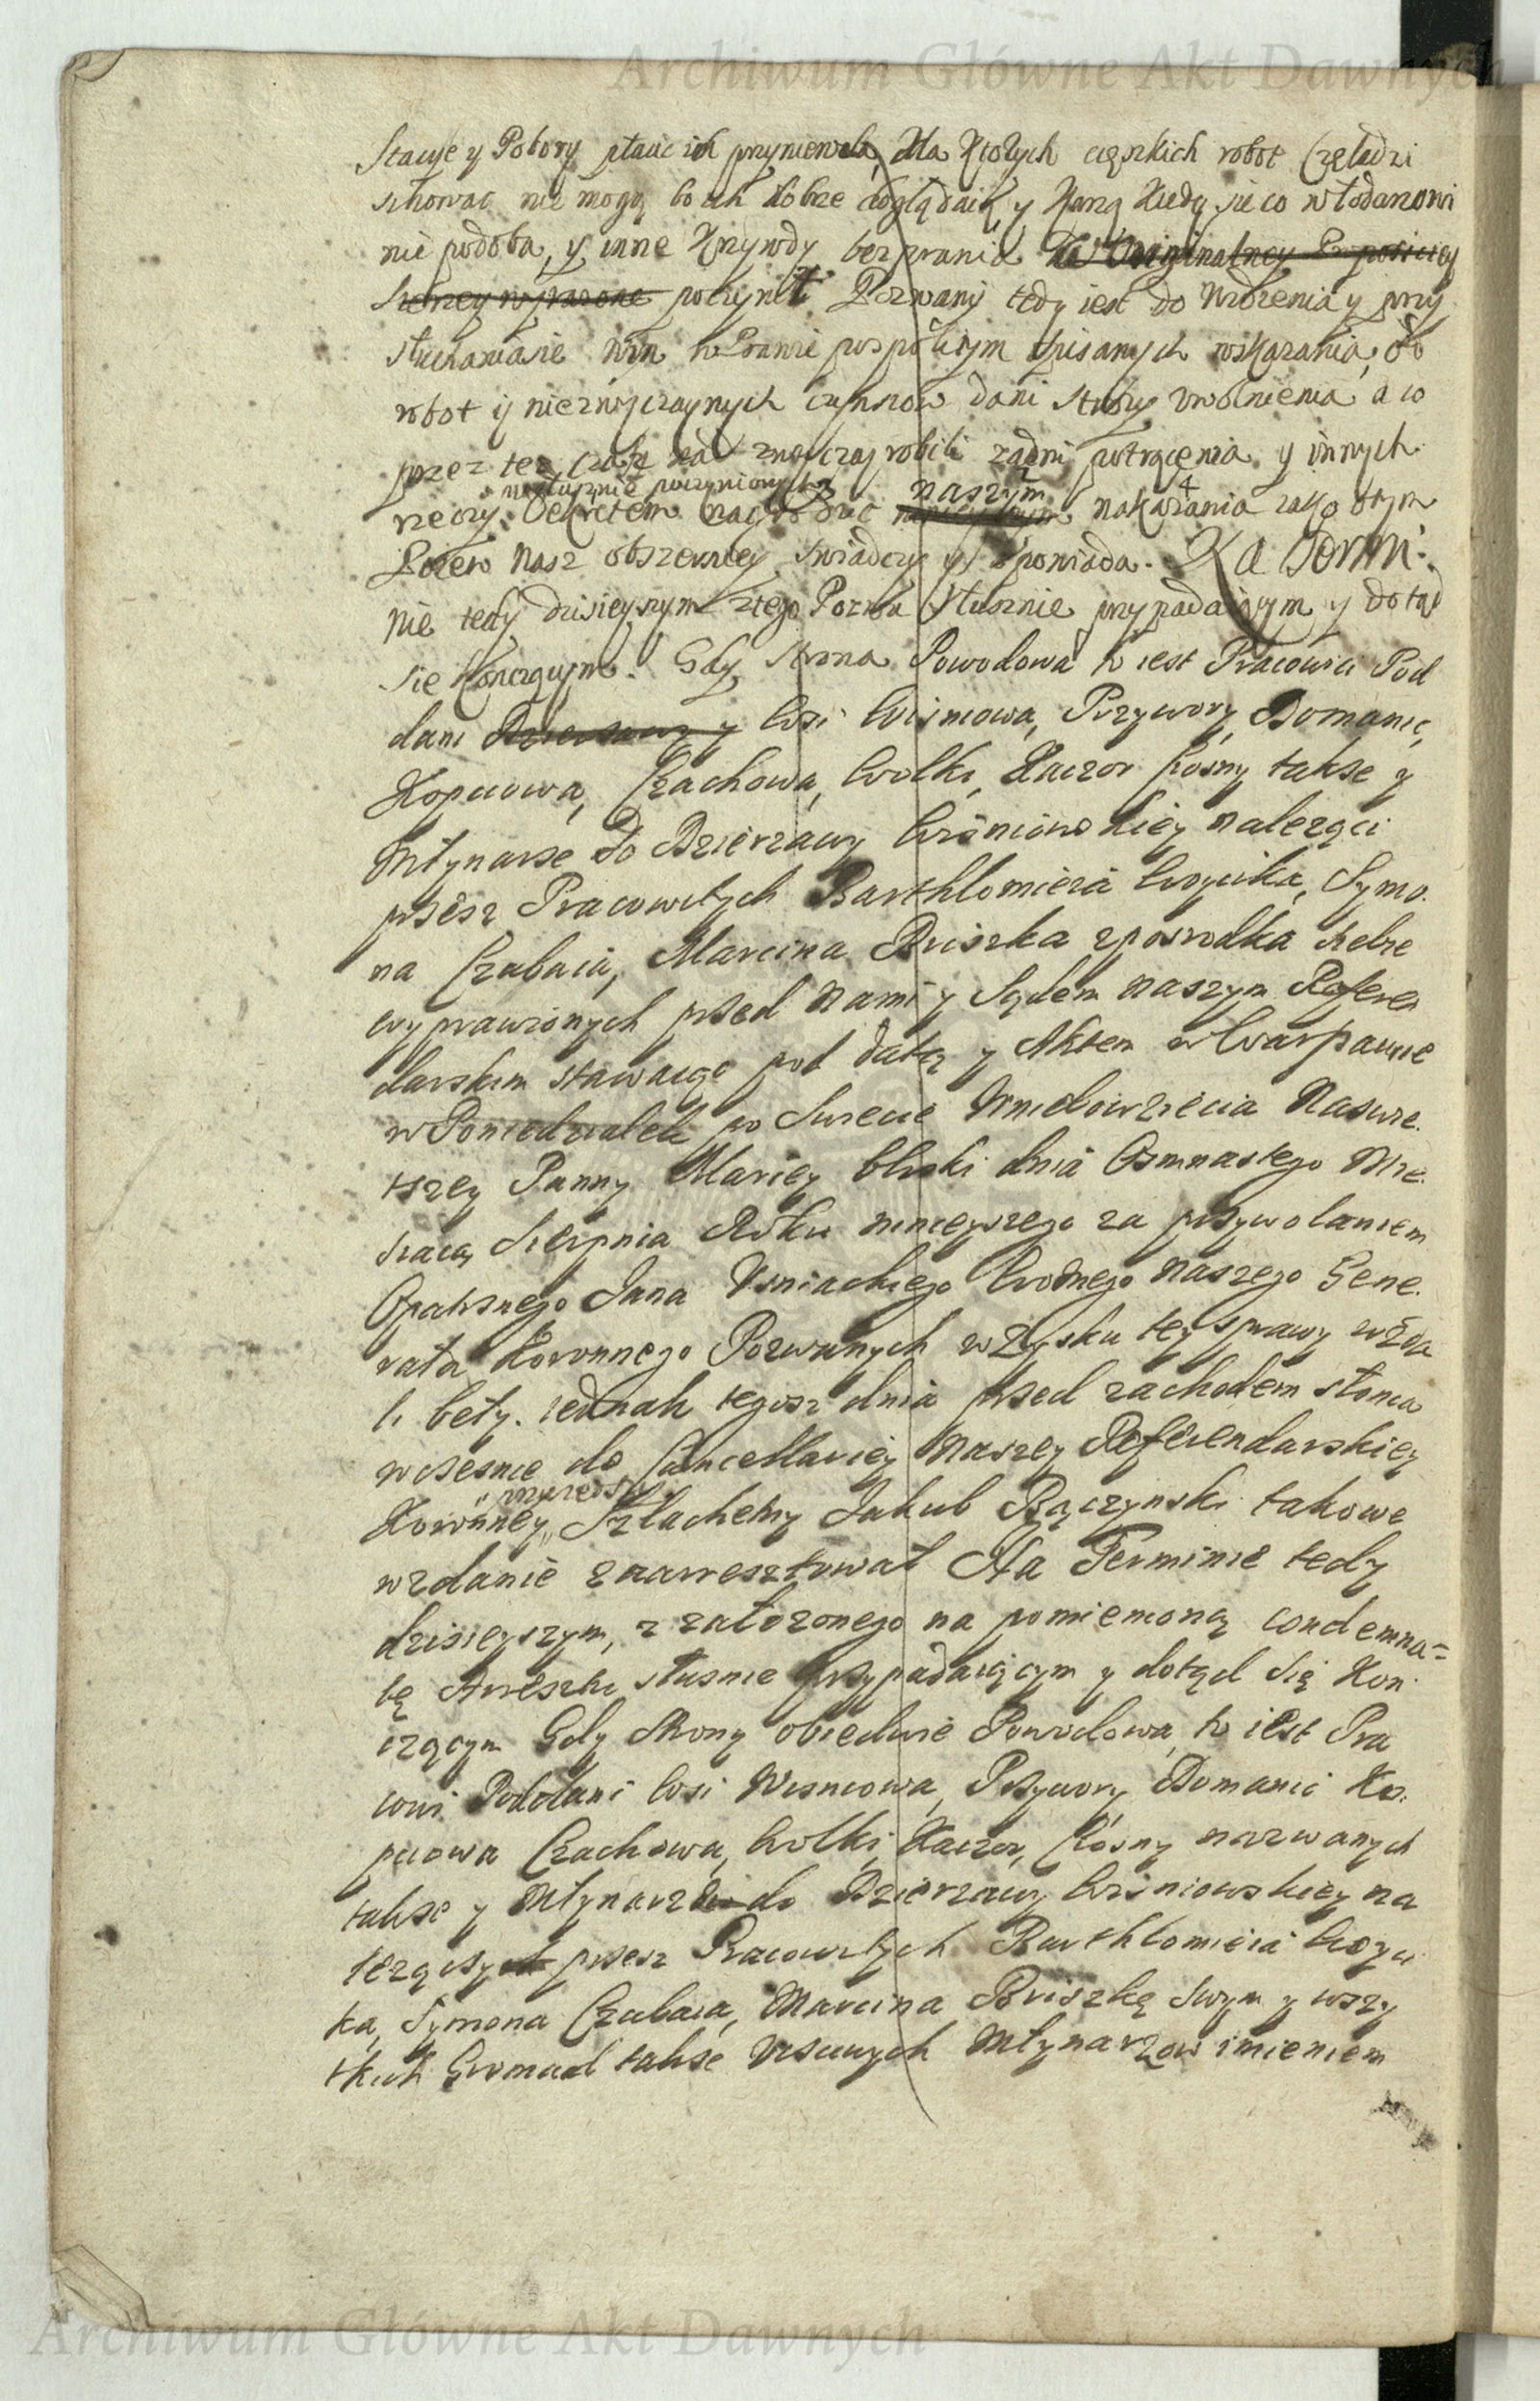 Archiwum Główne Akt Dawnych
Stacye y Pobory płacic ich przyniewala, dla ktorych cięszkich robot Czeladzi
chować nie mogą bo ich dobrze doglądaią y karzą kiedy sie co włodarzowi
nie podoba, y inne krzywdy bezprawia w Originalney Expositiey
szerzey wyrazone poczynił. Pozwany tedy iest do widzenia y przy
słuchania sie win w Prawie pospolitym opisanych wskazania, od
robot y niezwyczaynych czynszow dani Strozy uwolnienia a co
przez ten czas nad zwyczaj robili zadni potrącenia y innych
niesłusznie poczynionych naszym
rzeczy Dekretem nagrodzic nakazania iako o tym
Pozew Nasz obszerniey swiadczy y opowiada. Na Termi:
nie tedy dzisieyszym z tego Pozwu słusznie przypadaiącym y dotąd
sie konczącym. Gdy Strona Powodowa to iest Pracowici Pod
dani Dzierzawy y Wsi Wisniowa, Przywory, Domanic,
Kopciowa, Czachowa, Wolki, Kaczor Rosny takze y
Młynarze do Dzierzawy Wisniowskiey nalezący
przez Pracowitych Barthlomieia Woycika, Symo.
na Czubaia, Marcina Briszka zposrodka siebie
wyprawionych przed Nami y Sądem naszym Referen
darskim stawaiąc pod datą y Aktem w Warszawie
w Poniedziałek po Swięcie Wniebowzięcia Naswię.
tszey Panny Mariey bliski dnia Osmnastego Mie.
siaca Sierpnia Roku ninieyszego za przywołaniem
Opatrznego Jana Usniackiego Woznego Naszego Gene.
rała Koronnego Pozwanych w Zysku tey sprawy wzda
li bęły. iednak tegosz dnia przed zachodem słonca
wczesnie do Cancellariey Naszey Referendarskiey
przyszedszy
Koronney Szlachetny Jakub Bączynski takowe
wzdanie zaaresztował Na Terminie tedy
dzisieyszym, z załozonego na pomienioną condemna=
tę Aresztu słusnie przypadaiącym y dotąd się kon.
czącym Gdy Strony obiedwie Powodowa, to iest Pra
cowi Poddani Wsi Wisniowa, Przywory, Domanic Ko.
pciowa Czachowa, Wolki, Kaczor, Rosny nazwanych
takze y Młynarze do Dzierzawy Wisniowskiey na
lezących przez Pracowitych Barthlomieia Woyci
ka, Symona Czubaia, Marcina Briszką swym y wszy
tkich Gromad takze Młynarzow imieniem
Archiwum Główne Akt Dawnych